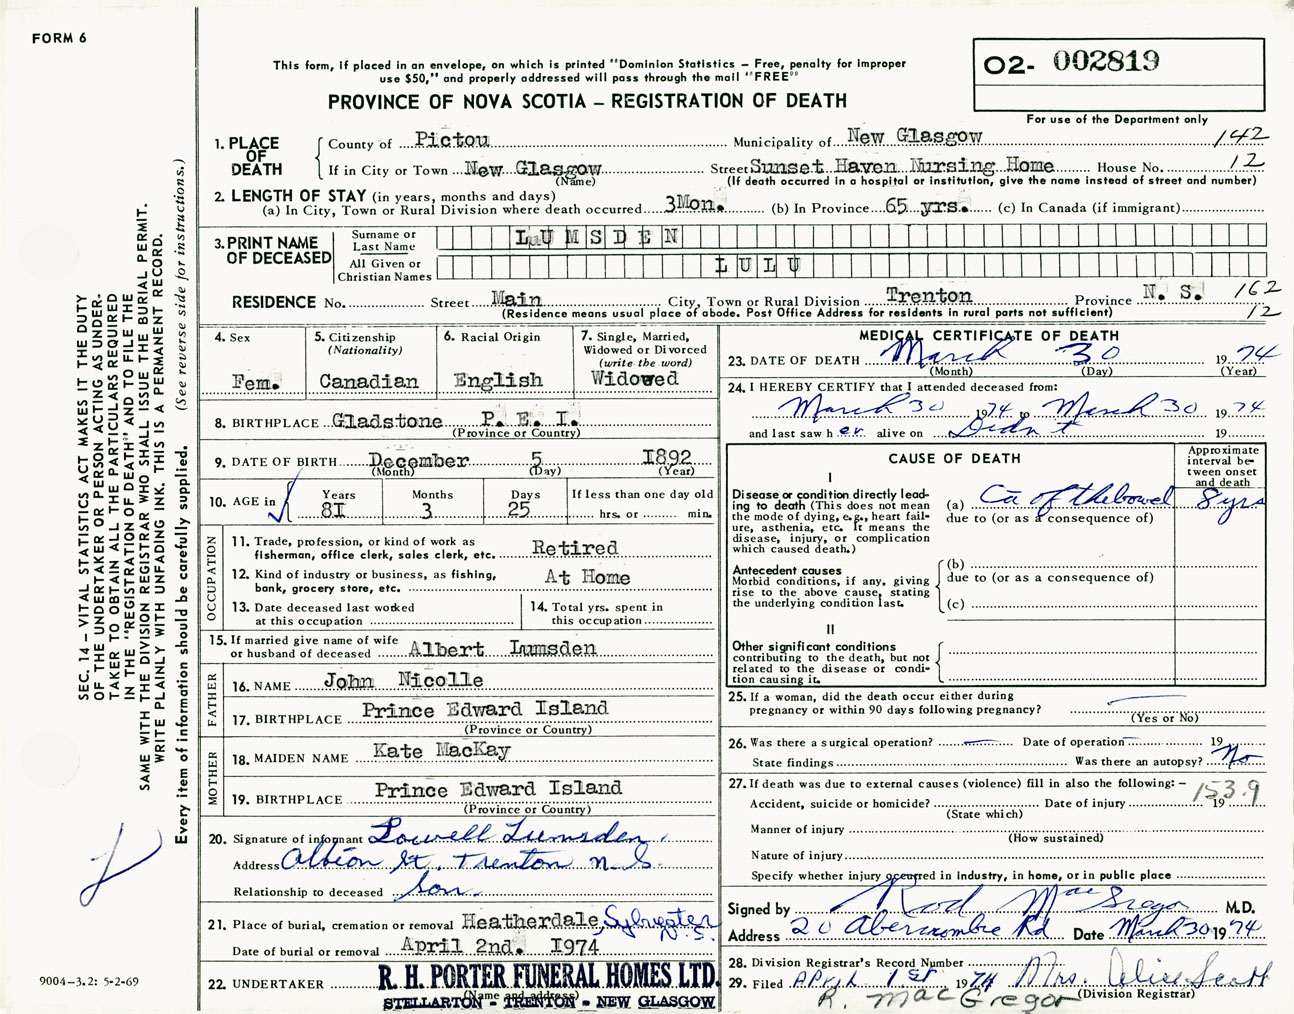 FORM 6
This form, if placed in an envelope, on which is printed "Dominion Statistics – Free, penalty for improper
use $50," and properly addressed will pass through the mail "FREE"
PROVINCE OF NOVA SCOTIA – REGISTRATION OF DEATH
02- 002819
For use of the Department only
1. PLACE OF DEATH
County of Pictou Municipality of New Glasgow 142
If in City or Town New Glasgow Street Sunset Haven Nursing Home House No. 12
(Name) (If death occurred in a hospital or institution, give the name instead of street and number)
2. LENGTH OF STAY (in years, months and days)
(a) In City, Town or Rural Division where death occurred 3Mon. (b) In Province 65 yrs. (c) In Canada (if immigrant)
3. PRINT NAME OF DECEASED
Surname or Last Name LUMSDEN
All Given or Christian Names LULU
RESIDENCE No. Street Main City, Town or Rural Division Trenton Province N. S. 162
(Residence means usual place of abode. Post Office Address for residents in rural parts not sufficient) 12
4. Sex
Fem.
5. Citizenship
(Nationality)
Canadian
6. Racial Origin
English
7. Single, Married,
Widowed or Divorced
(write the word)
Widowed
8. BIRTHPLACE Gladstone P. E. I.
(Province or Country)
9. DATE OF BIRTH December 5 1892
(Month) (Day) (Year)
10. AGE in
Years Months Days If less than one day old
81 3 25 hrs. or min.
OCCUPATION
11. Trade, profession, or kind of work as
fisherman, office clerk, sales clerk, etc. Retired
12. Kind of industry or business, as fishing,
bank, grocery store, etc. At Home
13. Date deceased last worked
at this occupation
14. Total yrs. spent in
this occupation
15. If married give name of wife
or husband of deceased Albert Lumsden
FATHER
16. NAME John Nicolle
17. BIRTHPLACE Prince Edward Island
(Province or Country)
MOTHER
18. MAIDEN NAME Kate MacKay
19. BIRTHPLACE Prince Edward Island
(Province or Country)
20. Signature of informant Lowell Lumsden
Address Albion St. Trenton N.S.
Relationship to deceased Son
21. Place of burial, cremation or removal Heatherdale, Sylvester
N.S.
Date of burial or removal April 2nd. 1974
22. UNDERTAKER R. H. PORTER FUNERAL HOMES LTD.
(Name and address)
STELLARTON - TRENTON - NEW GLASGOW
MEDICAL CERTIFICATE OF DEATH
23. DATE OF DEATH March 30 1974
(Month) (Day) (Year)
24. I HEREBY CERTIFY that I attended deceased from:
March 30 1974 to March 30 1974
and last saw her alive on Didn't 19
CAUSE OF DEATH
Approximate
interval be-
tween onset
and death
I
Disease or condition directly lead-
ing to death (This does not mean
the mode of dying, e.g., heart fail-
ure, asthenia, etc. It means the
disease, injury, or complication
which caused death.)
(a) Ca of the bowel 8 yrs
due to (or as a consequence of)
Antecedent causes
Morbid conditions, if any, giving
rise to the above cause, stating
the underlying condition last.
(b)
due to (or as a consequence of)
(c)
II
Other significant conditions
contributing to the death, but not
related to the disease or condi-
tion causing it.
25. If a woman, did the death occur either during
pregnancy or within 90 days following pregnancy?
(Yes or No)
26. Was there a surgical operation? — Date of operation — 19
State findings Was there an autopsy? No
27. If death was due to external causes (violence) fill in also the following: –
153.9
Accident, suicide or homicide? Date of injury 19
(State which)
Manner of injury
(How sustained)
Nature of injury
Specify whether injury occurred in industry, in home, or in public place
Signed by Rod MacGregor M.D.
Address 20 Abercrombie Rd Date March 30 1974
28. Division Registrar's Record Number
29. Filed April 1st 1974 Mrs. Alice Scott
(Division Registrar)
R. MacGregor
SEC. 14 – VITAL STATISTICS ACT MAKES IT THE DUTY
OF THE UNDERTAKER OR PERSON ACTING AS UNDER-
TAKER TO OBTAIN ALL THE PARTICULARS REQUIRED
IN THE "REGISTRATION OF DEATH" AND TO FILE THE
SAME WITH THE DIVISION REGISTRAR WHO SHALL ISSUE THE BURIAL PERMIT.
WRITE PLAINLY WITH UNFADING INK. THIS IS A PERMANENT RECORD.
Every item of information should be carefully supplied. (See reverse side for instructions.)
9004-3.2: 5-2-69